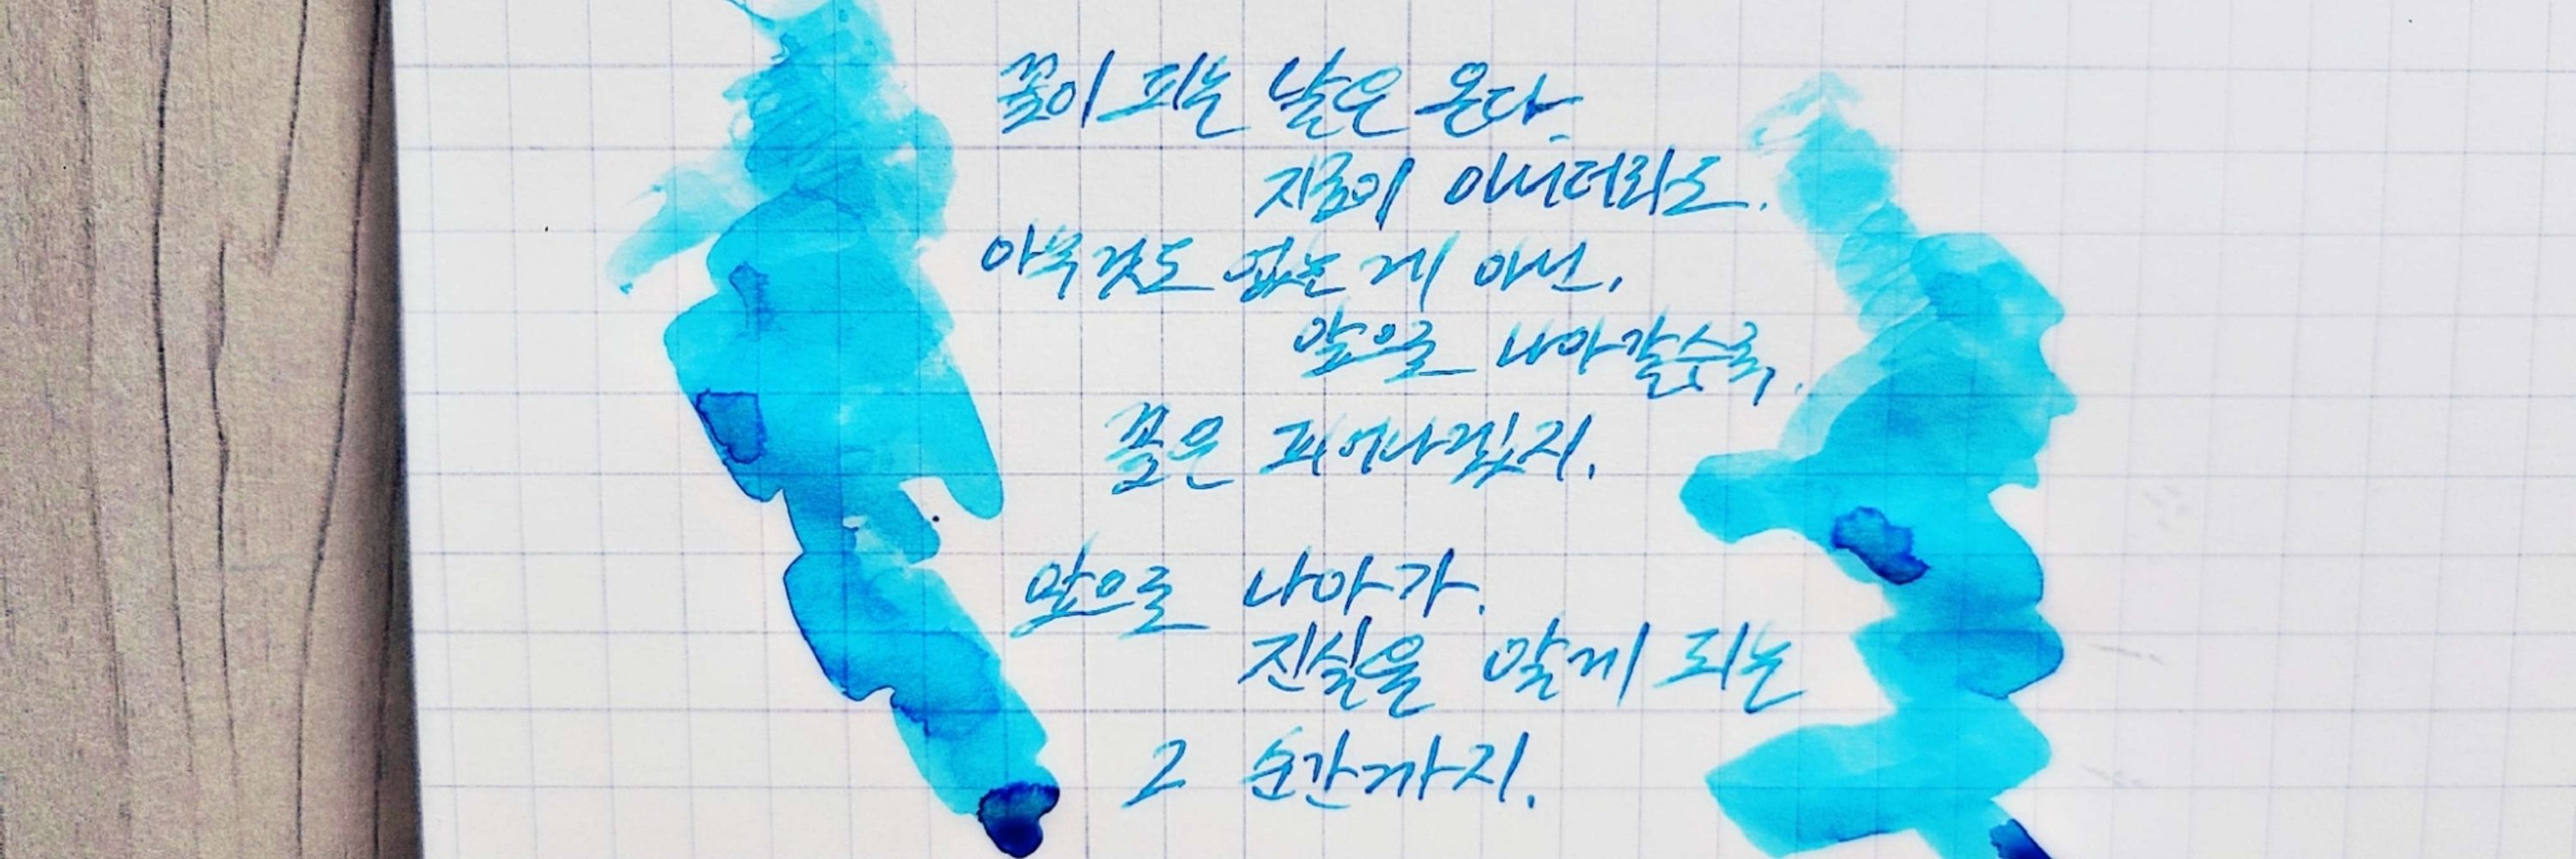 꽃이 피는 날은 온다.
지금이 아니더라도.
아무것도 없는 게 아닌,
앞으로 나아갈수록,
꽃은 피어나겠지.
앞으로 나아가.
진실을 알게 되는
그 순간까지.